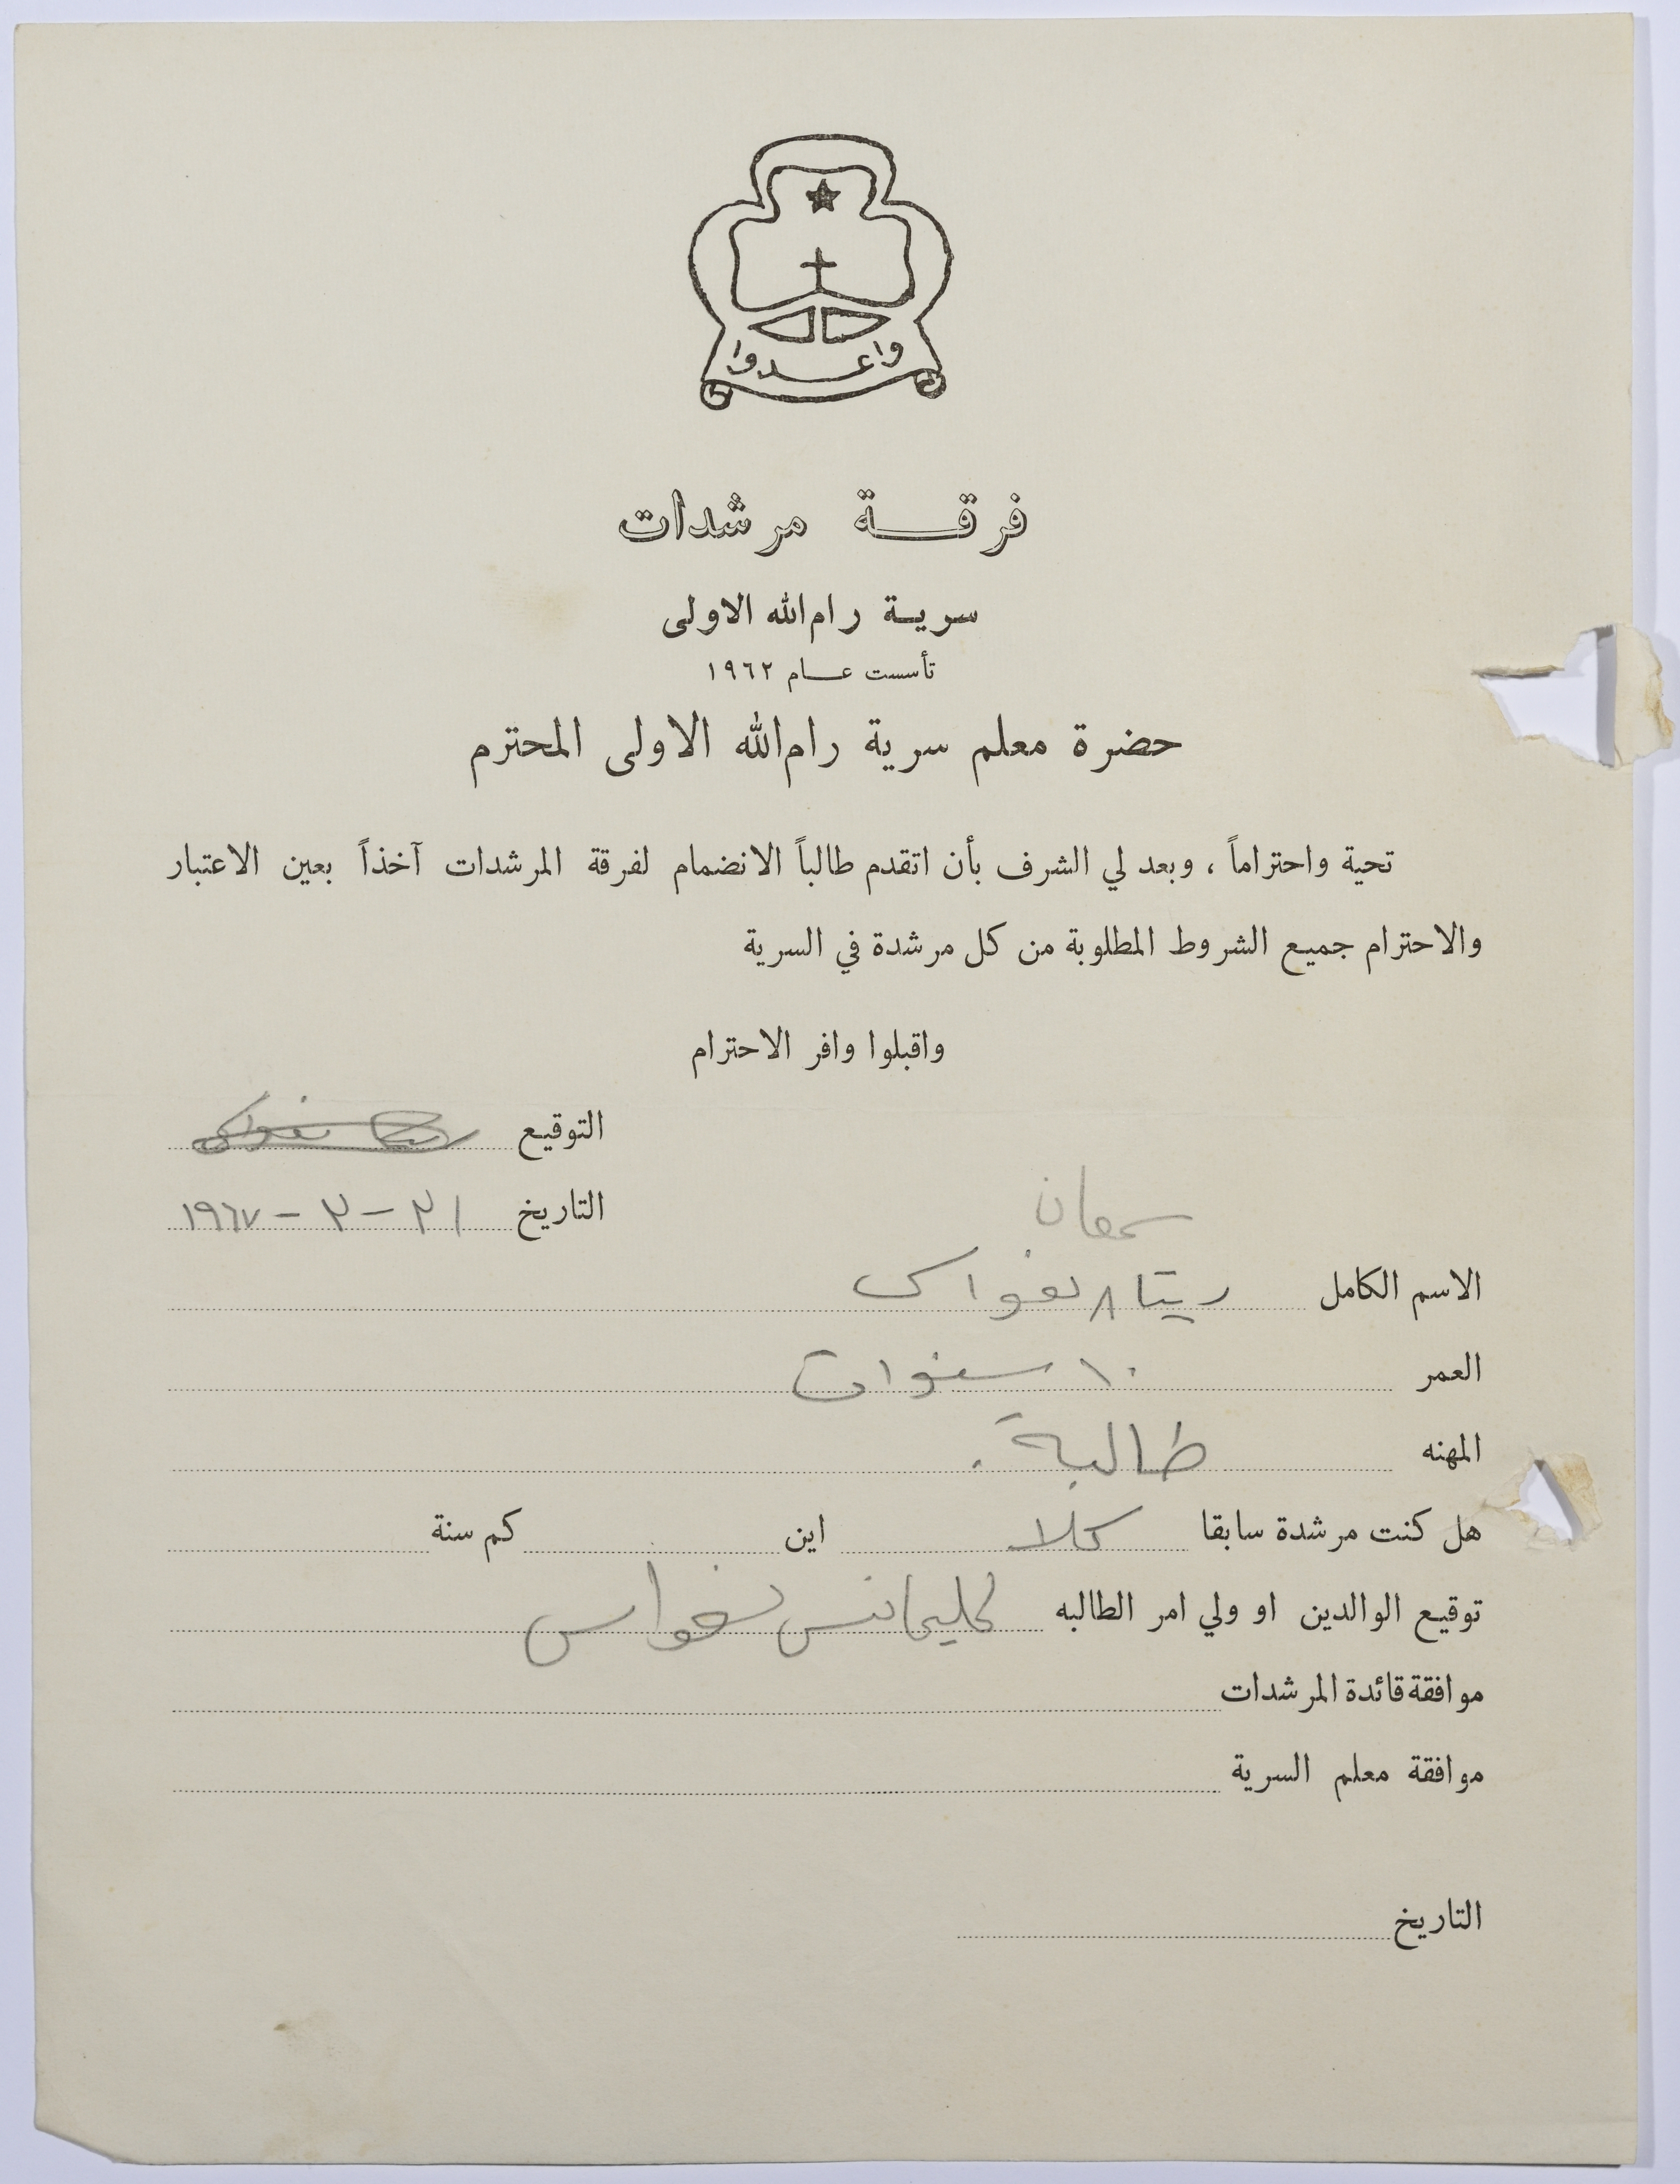 واعدوا
فرقة مرشدات
سرية رام الله الاولى
تأسست عام ١٩٦٢
حضرة معلم سرية رام الله الاولى المحترم
تحية واحتراماً ، وبعد لي الشرف بأن اتقدم طالباً الانضمام لفرقة المرشدات آخذاً بعين الاعتبار
والاحترام جميع الشروط المطلوبة من كل مرشدة في السرية
واقبلوا وافر الاحترام
التوقيع
التاريخ ٣١ - ٣ - ١٩٦٧
سمعان
الاسم الكامل ريتا نغواس
العمر ١٠ سنوات
المهنه طالبة .
هل كنت مرشدة سابقا كلا اين كم سنة
توقيع الوالدين او ولي امر الطالبه نغواس
موافقة قائدة المرشدات
موافقة معلم السرية
التاريخ